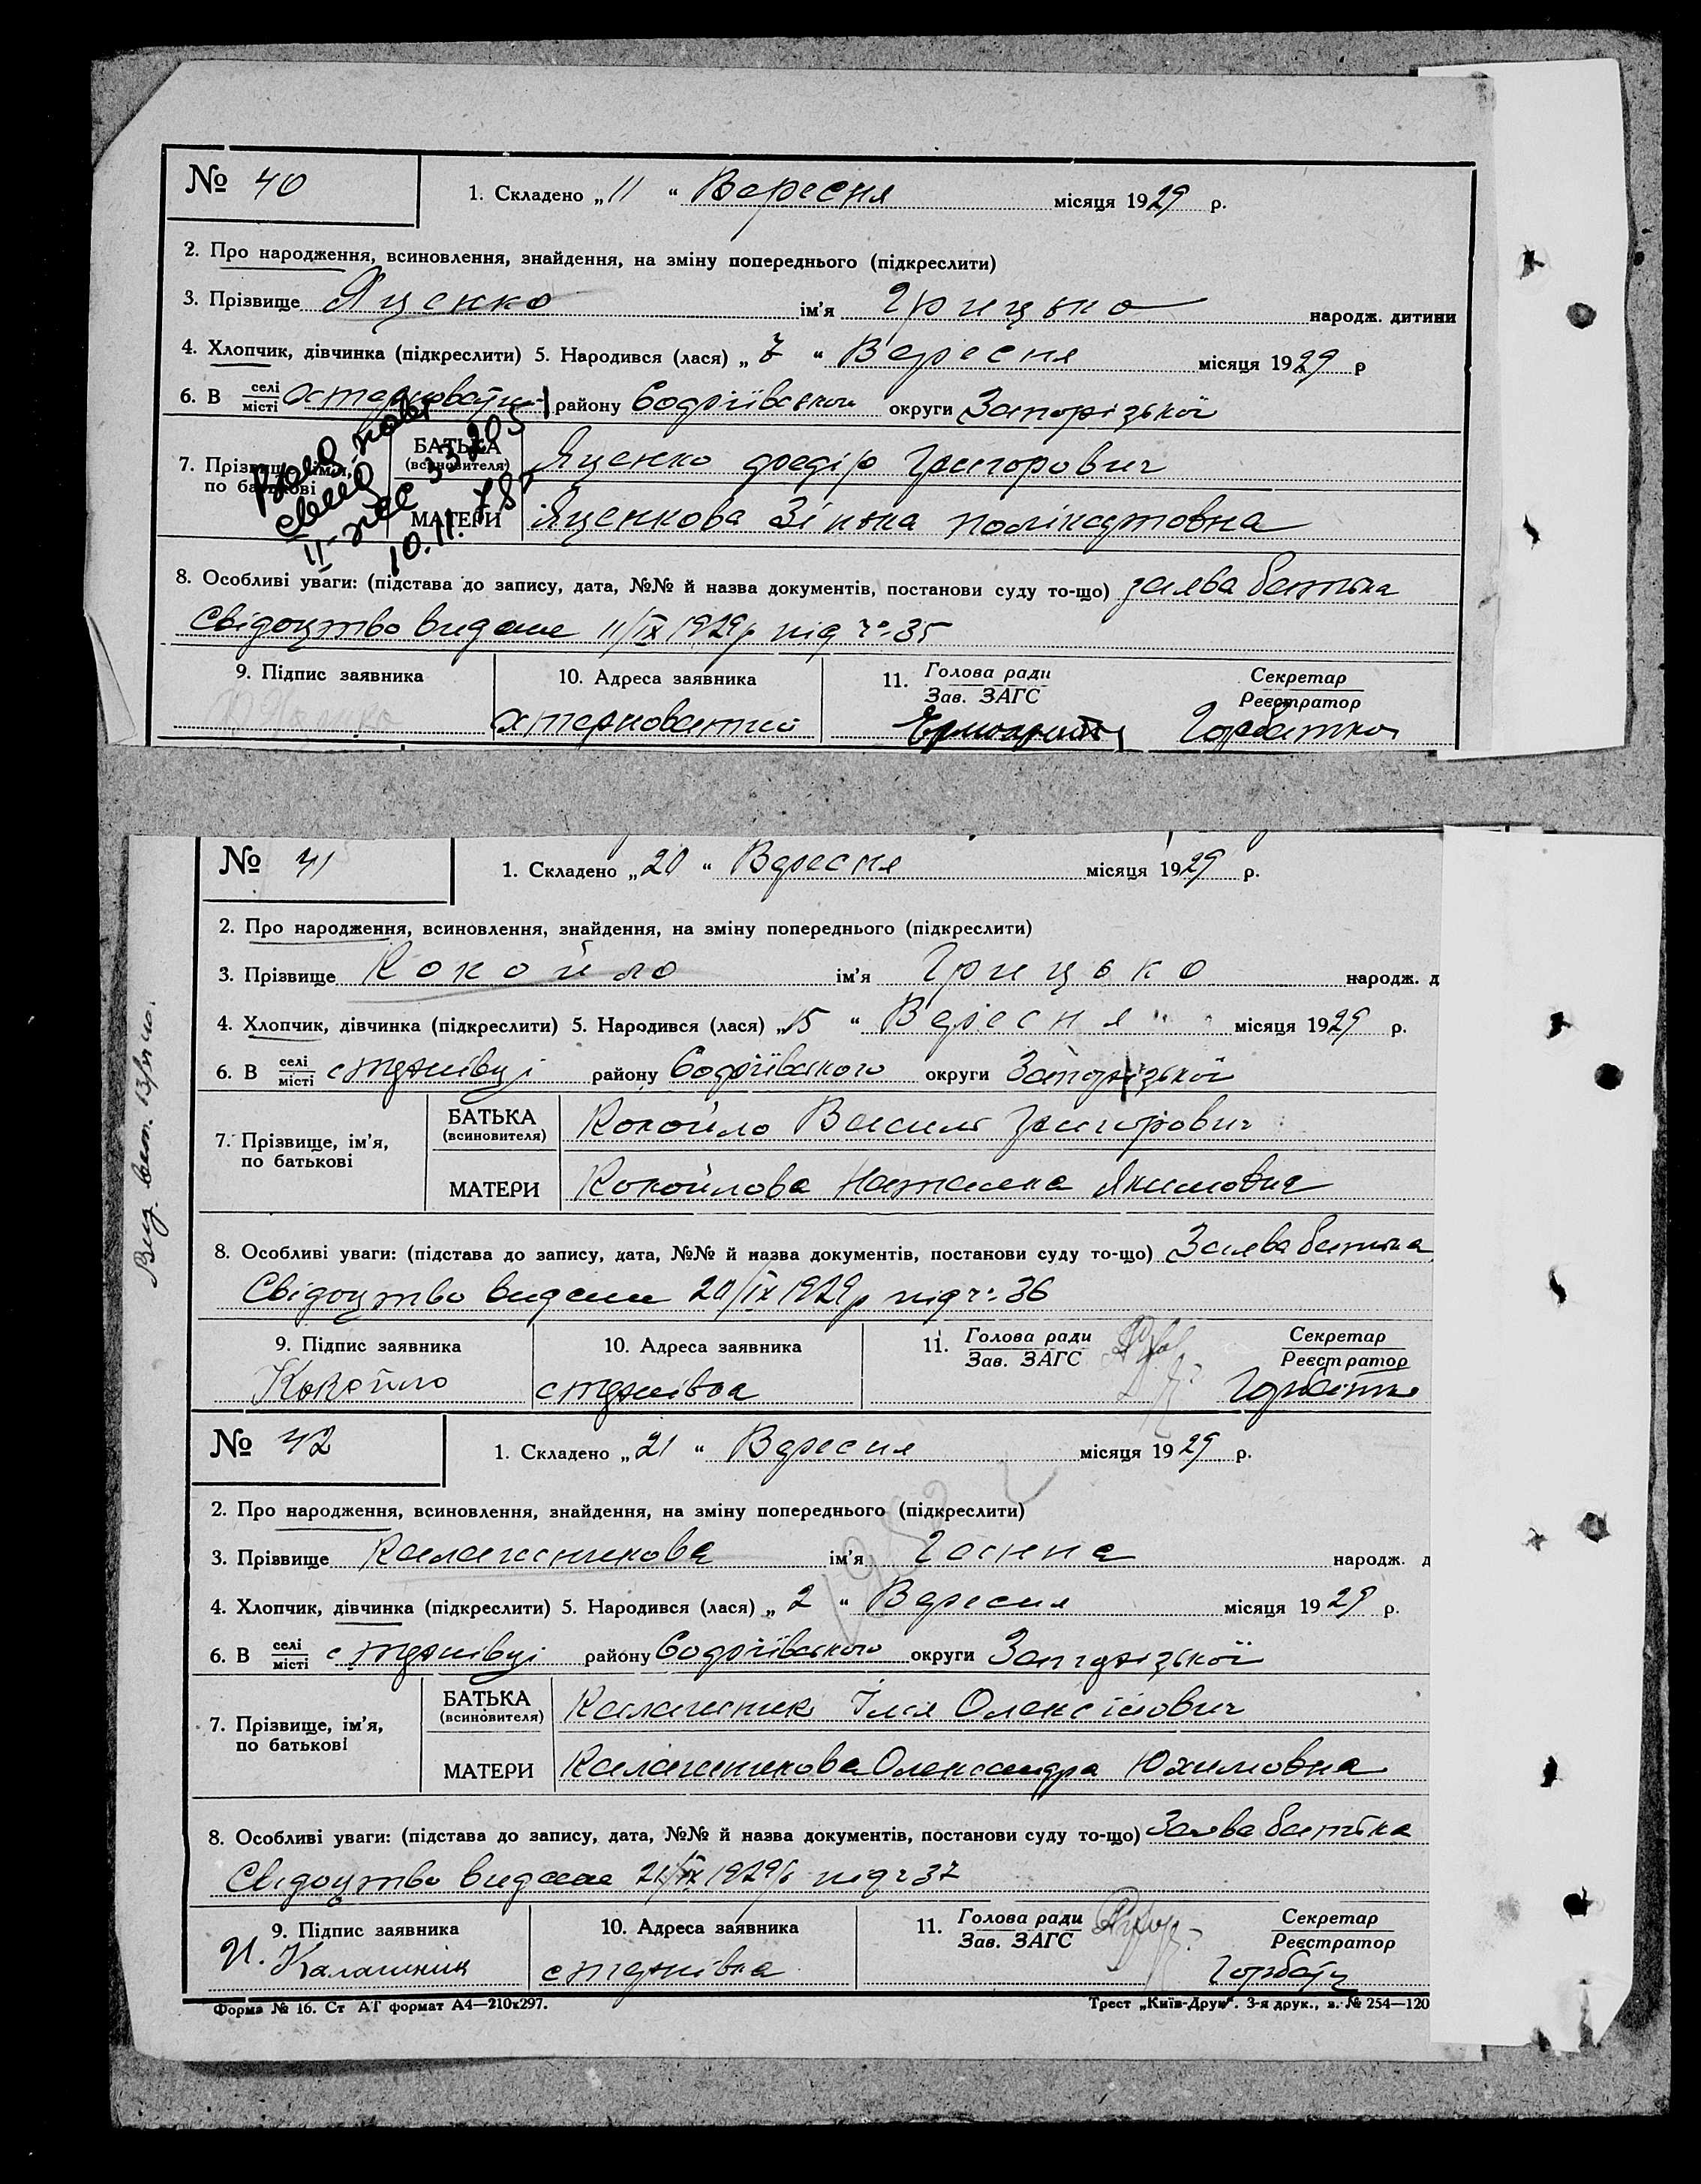 № 40
1. Складено „ 11 “ Вересня місяця 1929 р.
2. Про народження, всиновлення, знайдення, на зміну попереднього (підкреслити)
3. Прізвище Яценко ім'я Грицько народж. дитини
4. Хлопчик, дівчинка (підкреслити) 5. Народився (лася) „ 7 “ Вересня місяця 1929 р
6. В селі місті району округи Запорізької
7. Прізвище, імя, по батькові
БАТЬКА (всиновителя) Яценко Федір Григорович
МАТЕРИ Яценкова Зінька Полікарповна
10.11.78
8. Особливі уваги: (підстава до запису, дата, №№ й назва документів, постанови суду то-що) заява батька
Свідоцтво видане 11/IX 1929 р під № 35
9. Підпис заявника 10. Адреса заявника 11. Голова ради Зав. ЗАГС Секретар Реєстратор
Горбатко
№ 41
1. Складено „ 20 “ Вересня місяця 1929 р.
2. Про народження, всиновлення, знайдення, на зміну попереднього (підкреслити)
3. Прізвище Кокойло ім'я Грицько народж. д
4. Хлопчик, дівчинка (підкреслити) 5. Народився (лася) „ 15 “ Вересня місяця 1929 р.
6. В селі місті району округи Запорізької
7. Прізвище, ім'я, по батькові
БАТЬКА (всиновителя) Кокойло Василь Григорович
МАТЕРИ Кокойлова Наталка Якимовна
8. Особливі уваги: (підстава до запису, дата, №№ й назва документів, постанови суду то-що) Заява батька
Свідоцтво видане 20/IX 1929 р під № 36
9. Підпис заявника 10. Адреса заявника 11. Голова ради Зав. ЗАГС Секретар Реєстратор
Кокойло Горбатко
№ 42
1. Складено „ 21 “ Вересня місяця 1929 р.
2. Про народження, всиновлення, знайдення, на зміну попереднього (підкреслити)
3. Прізвище Калашникова ім'я Ганна народж. д
4. Хлопчик, дівчинка (підкреслити) 5. Народився (лася) „ 2 “ Вересня місяця 1929 р.
6. В селі місті району округи Запорізької
7. Прізвище, ім'я, по батькові
БАТЬКА (всиновителя) Калашник Ілія Олексійович
МАТЕРИ Калашникова Олександра Юхимовна
8. Особливі уваги: (підстава до запису, дата, №№ й назва документів, постанови суду то-що) Заява батька
Свідоцтво видане 21/IX 1929 р під № 37
9. Підпис заявника 10. Адреса заявника 11. Голова ради Зав. ЗАГС Секретар Реєстратор
И. Калашник
Форма № 16. Ст АТ формат А4—210х297. Трест „Київ-Друк“. 3-я друк., з. № 254—120